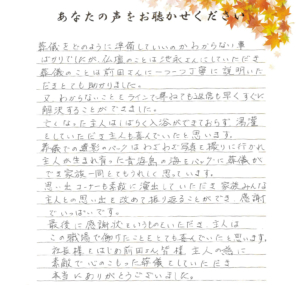 あなたの声をお聴かせください
葬儀をどのように準備していいのかわからない事
ばかりでしたが、仏壇のことは活き活きにしていただき
葬儀のことは前田さんに一つ一つ丁寧に説明いた
だきとても助かりました。
又、わからないこともラインで尋ねても返信も早くすぐに
解決することができました。
亡くなった主人はしばらく入浴ができておらず、湯灌
をしていただき主人も喜んでいたと思います。
葬儀での遺影のバックはわざわざ写真を撮りに行かれ
主人が生まれ育った青海島の海をバックに葬儀が
でき家族一同とてもうれしく思っています。
思い出コーナーも素敵に演出していただき家族みんな
主人との思い出を改めて振り返ることができ、感謝
でいっぱいです。
最後に感謝状というものをいただき、主人は
この職場で働けたことをとても喜んでいたと思います。
社長様をはじめ前田さん、皆様、主人の為に
素敵で心のこもった葬儀をしていただき
本当にありがとうございました。